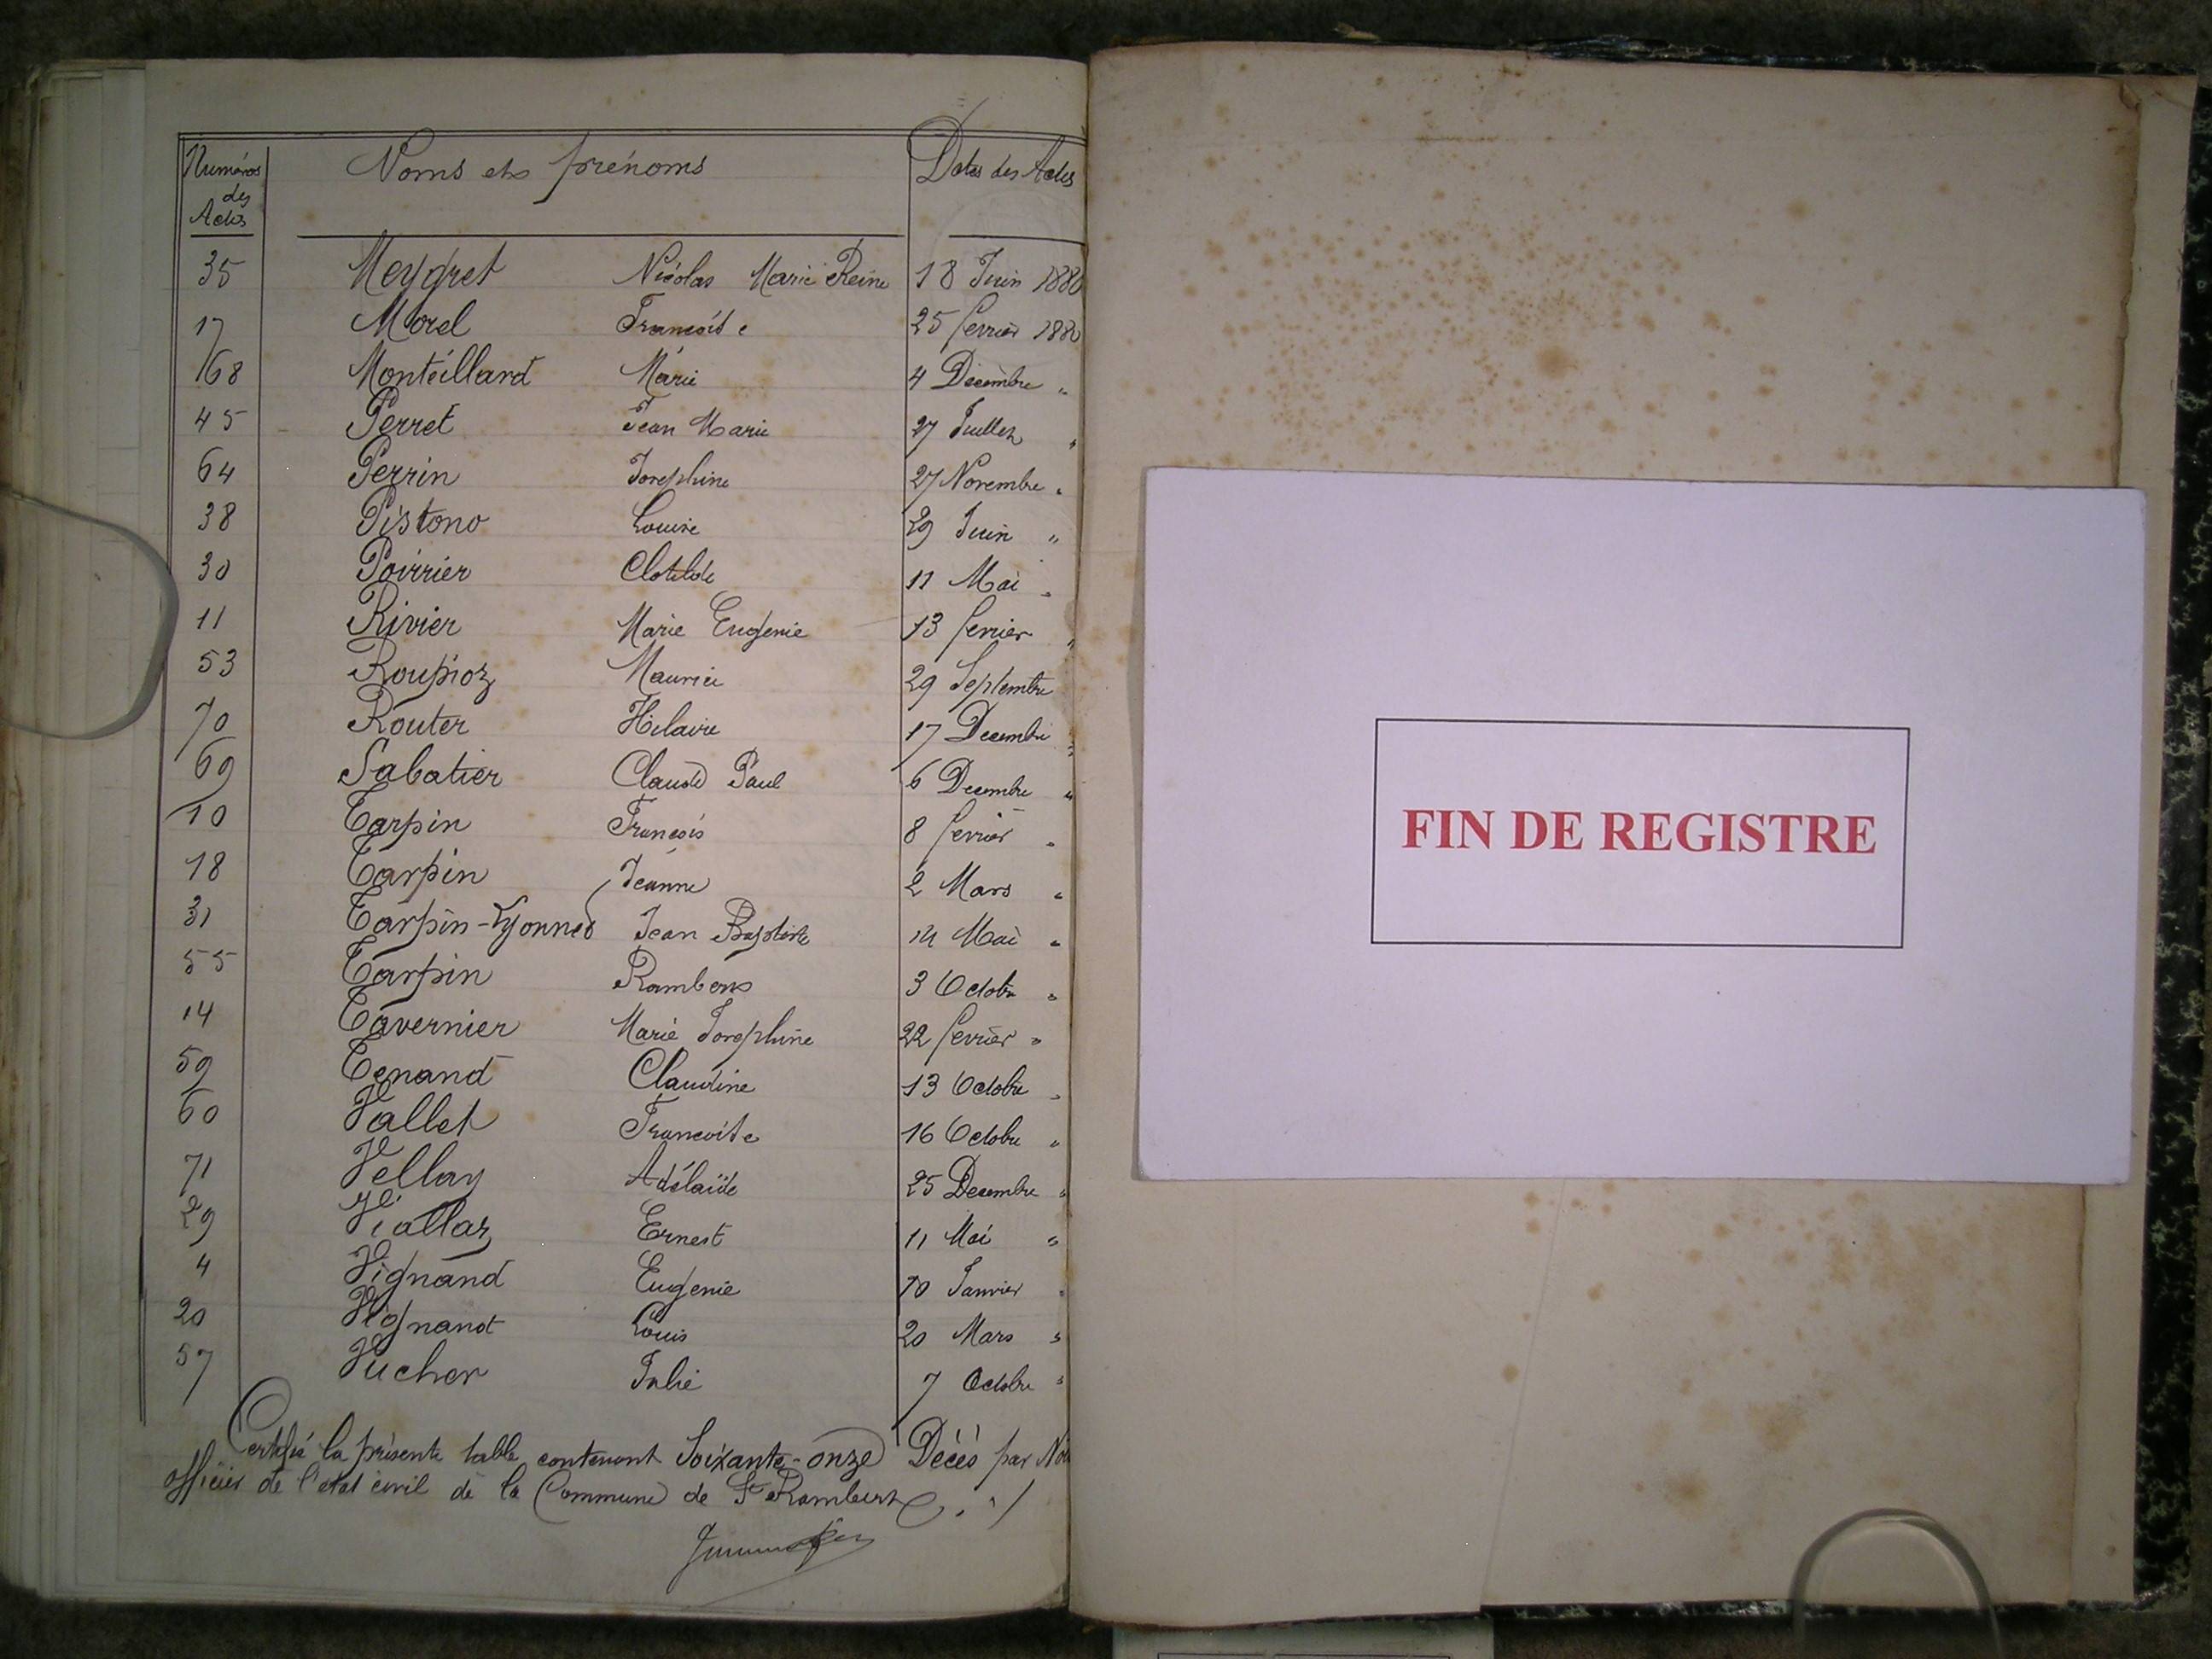 Numéros des Actes Noms et prénoms Dates des Actes
35 Meygret Nicolas Marie Reine 18 Juin 1880
17 Morel Francoise 25 fevrier 1880
68 Monteillard Marie 4 Décembre "
45 Perret Jean Marie 27 Juillet "
64 Perrin Josephine 27 Novembre "
38 Pistono Louise 29 Juin "
30 Poirrier Clotilde 11 Mai "
11 Rivier Marie Eugenie 13 fevrier "
53 Roupioz Maurice 29 Septembre
70 Router Hilaire 17 Decembre "
69 Sabatier Claude Paul 6 Decembre "
10 Tarpin François 8 fevrier "
18 Tarpin Jeanne 2 Mars "
31 Tarpin-Lyonnet Jean Baptiste 14 Mai "
55 Tarpin Rambert 3 Octobre "
14 Tavernier Marie Josephine 22 fevrier "
59 Tenand Claudine 13 Octobre "
60 Vallet Francoise 16 Octobre "
71 Vellay Adélaïde 25 Decembre "
29 Viallaz Ernest 11 Mai "
4 Vignand Eugenie 10 Janvier "
20 Vignand Louis 20 Mars "
57 Vucher Julie 7 Octobre "
Certifié la présente table contenant Soixante-onze Décès par
officier de l'etat civil de la Commune de St Rambert
FIN DE REGISTRE